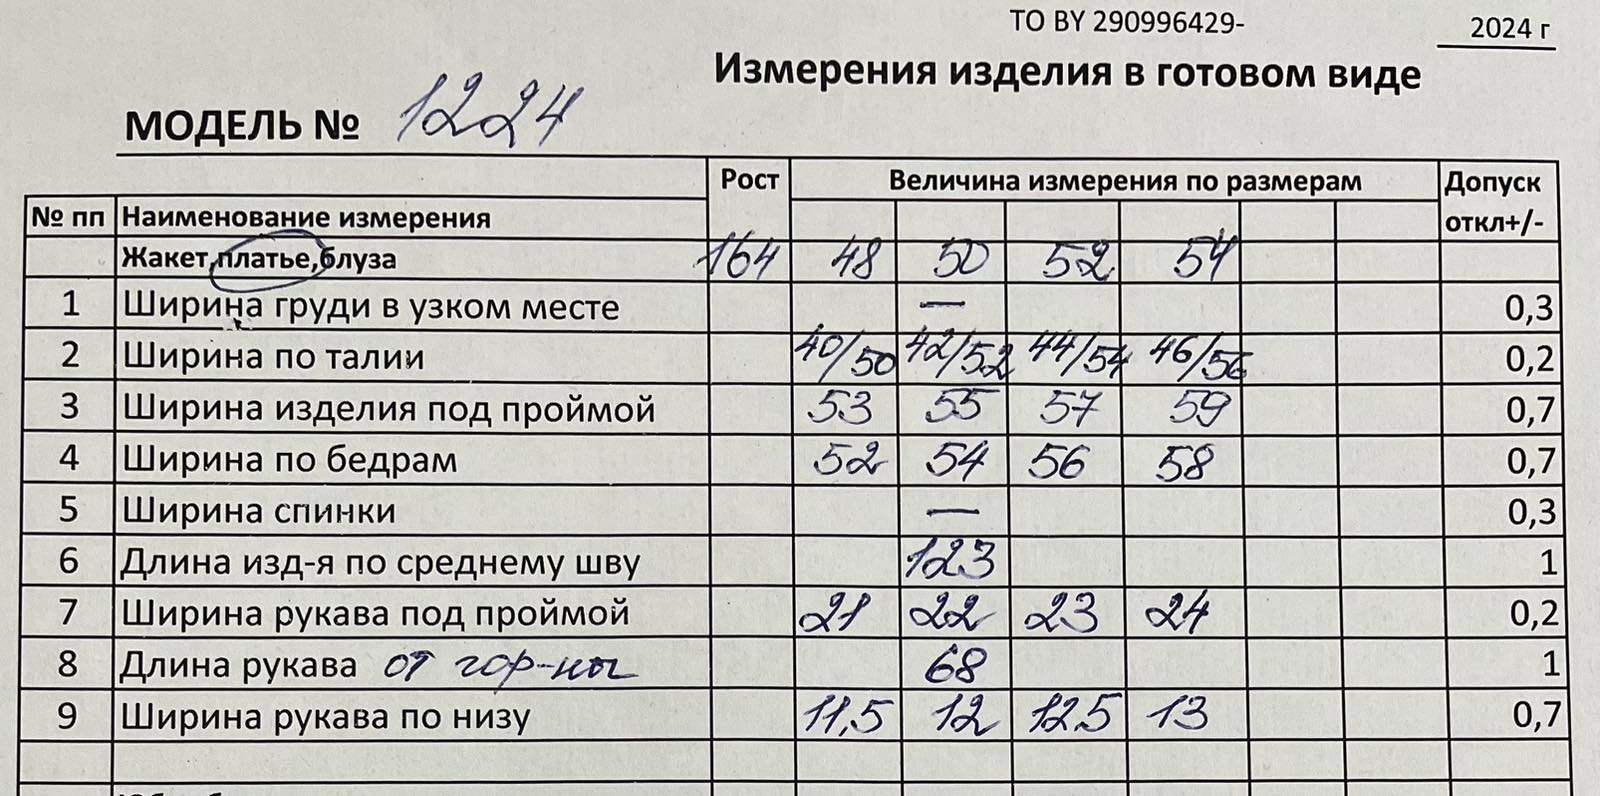 ТО BY 290996429-
2024 г
Измерения изделия в готовом виде
МОДЕЛЬ № 1224
Рост Величина измерения по размерам Допуск
№ пп Наименование измерения откл+/-
Жакет,платье,блуза 164 48 50 52 54
1 Ширина груди в узком месте — 0,3
2 Ширина по талии 40/50 42/52 44/54 46/56 0,2
3 Ширина изделия под проймой 53 55 57 59 0,7
4 Ширина по бедрам 52 54 56 58 0,7
5 Ширина спинки — 0,3
6 Длина изд-я по среднему шву 123 1
7 Ширина рукава под проймой 21 22 23 24 0,2
8 Длина рукава от гор-ны 68 1
9 Ширина рукава по низу 11,5 12 12,5 13 0,7